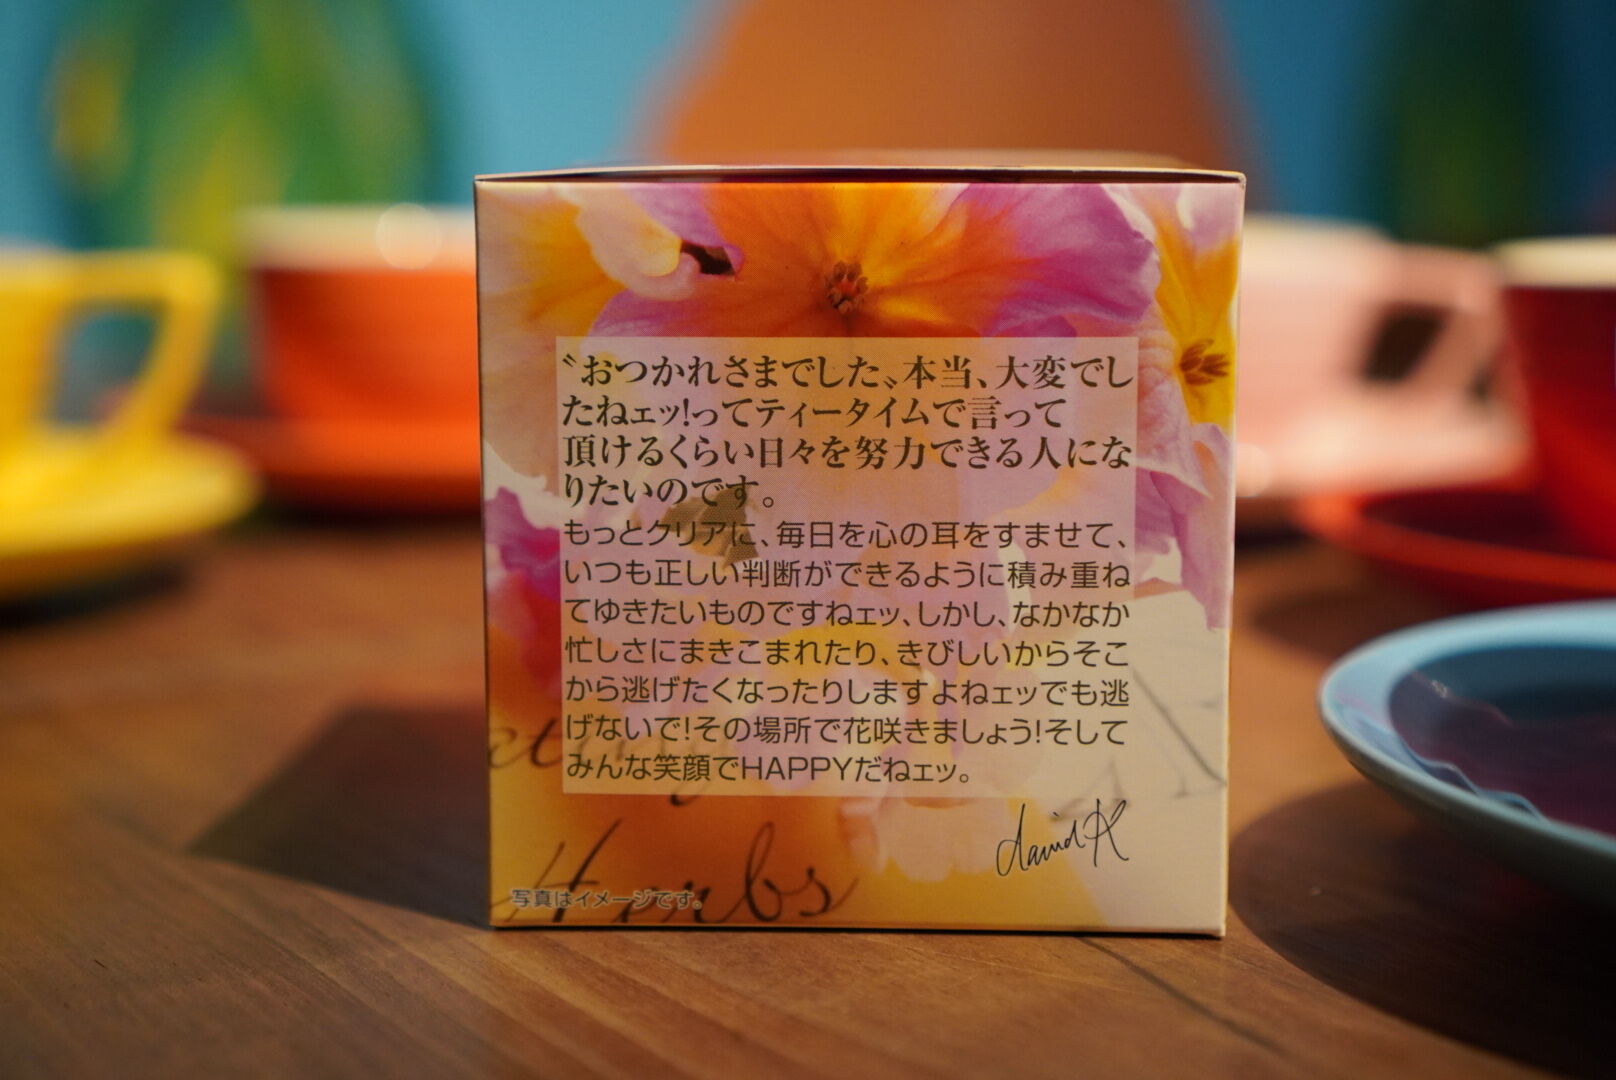 〝おつかれさまでした〟本当、大変でし
たねェッ!ってティータイムで言って
頂けるくらい日々を努力できる人にな
りたいのです。
もっとクリアに、毎日を心の耳をすませて、
いつも正しい判断ができるように積み重ね
てゆきたいものですねェッ、しかし、なかなか
忙しさにまきこまれたり、きびしいからそこ
から逃げたくなったりしますよねェッでも逃
げないで!その場所で花咲きましょう!そして
みんな笑顔でHAPPYだねェッ。
david H
Herbs
写真はイメージです。